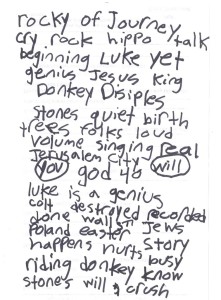 rocky of Journey
cry rock hippo talk
beginning Luke yet
genius Jesus King
Donkey Disiples
stones quiet birth
trees folks loud
volume singing real
Jerusalem city will
you god 40
luke is a genius
colt destroyed recorded
done wall in Jews
Poland easter
happens hurts story
riding donkey know busy
stones will crush